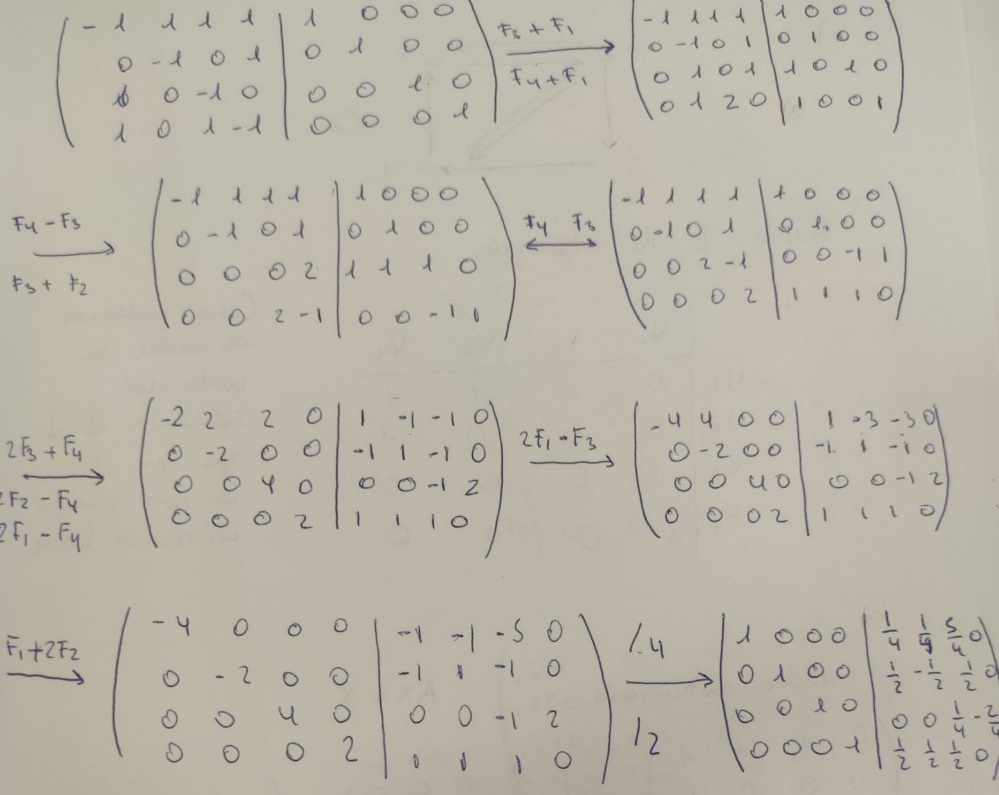 -1 1 1 1 | 1 0 0 0
0 -1 0 1 | 0 1 0 0
0 -1 0 | 0 0 1 0
1 0 1 -1 | 0 0 0 1
F3 + F1
F4 + F1
-1 1 1 1 | 1 0 0 0
0 -1 0 1 | 0 1 0 0
0 1 0 1 | 1 0 1 0
0 1 2 0 | 1 0 0 1
F4 - F3
F3 + F2
-1 1 1 1 | 1 0 0 0
0 -1 0 1 | 0 1 0 0
0 0 0 2 | 1 1 1 0
0 0 2 -1 | 0 0 -1 1
F4 F3
-1 1 1 1 | 1 0 0 0
0 -1 0 1 | 0 1 0 0
0 0 2 -1 | 0 0 -1 1
0 0 0 2 | 1 1 1 0
2F3 + F4
2F2 - F4
2F1 - F4
-2 2 2 0 | 1 -1 -1 0
0 -2 0 0 | -1 1 -1 0
0 0 4 0 | 0 0 -1 2
0 0 0 2 | 1 1 1 0
2F1 - F3
-4 4 0 0 | 1 -3 -3 0
0 -2 0 0 | -1 1 -1 0
0 0 4 0 | 0 0 -1 2
0 0 0 2 | 1 1 1 0
F1 + 2F2
-4 0 0 0 | -1 -1 -5 0
0 -2 0 0 | -1 1 -1 0
0 0 4 0 | 0 0 -1 2
0 0 0 2 | 1 1 1 0
/.4
/2
1 0 0 0 | 1/4 1/4 5/4 0
0 1 0 0 | 1/2 -1/2 1/2 0
0 0 1 0 | 0 0 1/4 -2/4
0 0 0 1 | 1/2 1/2 1/2 0